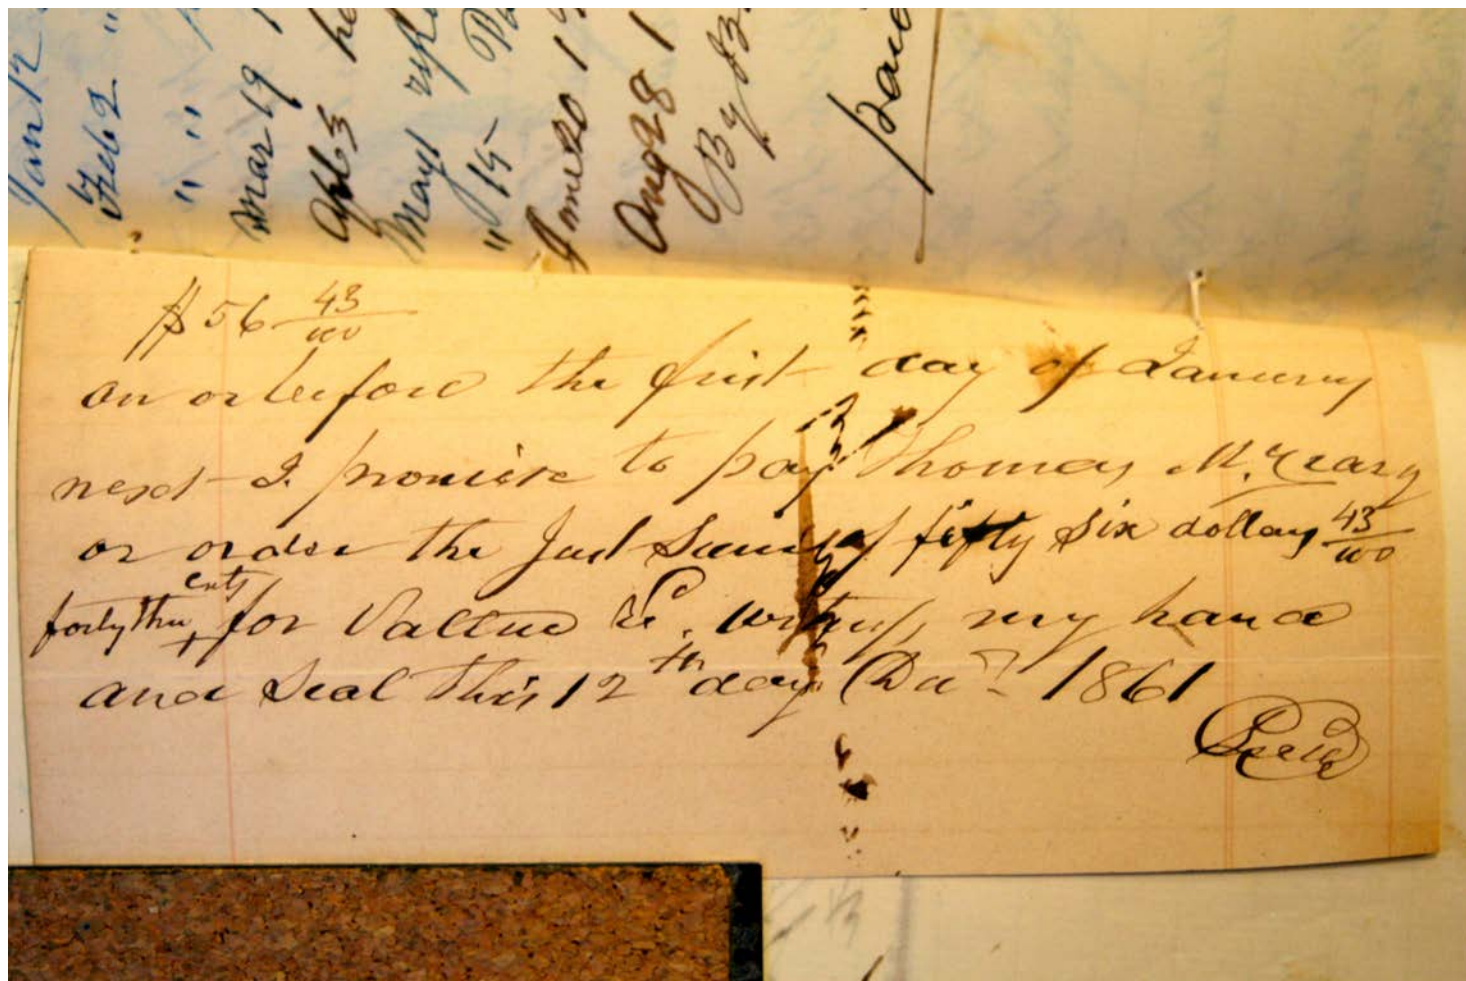 Jan 12
Feb 2 "
" "
Mar 19
Apl 3
May 1
" 15
June 20 1
Aug 28 1
By
paid
$ 56 43/100
on or before the first day of January
next I promise to pay Thomas
or order the Just Sum of fifty six dollars 43/100
cnts
forty three for Vallue Rc. witness my hand
and Seal This 12th day 1861
Seal